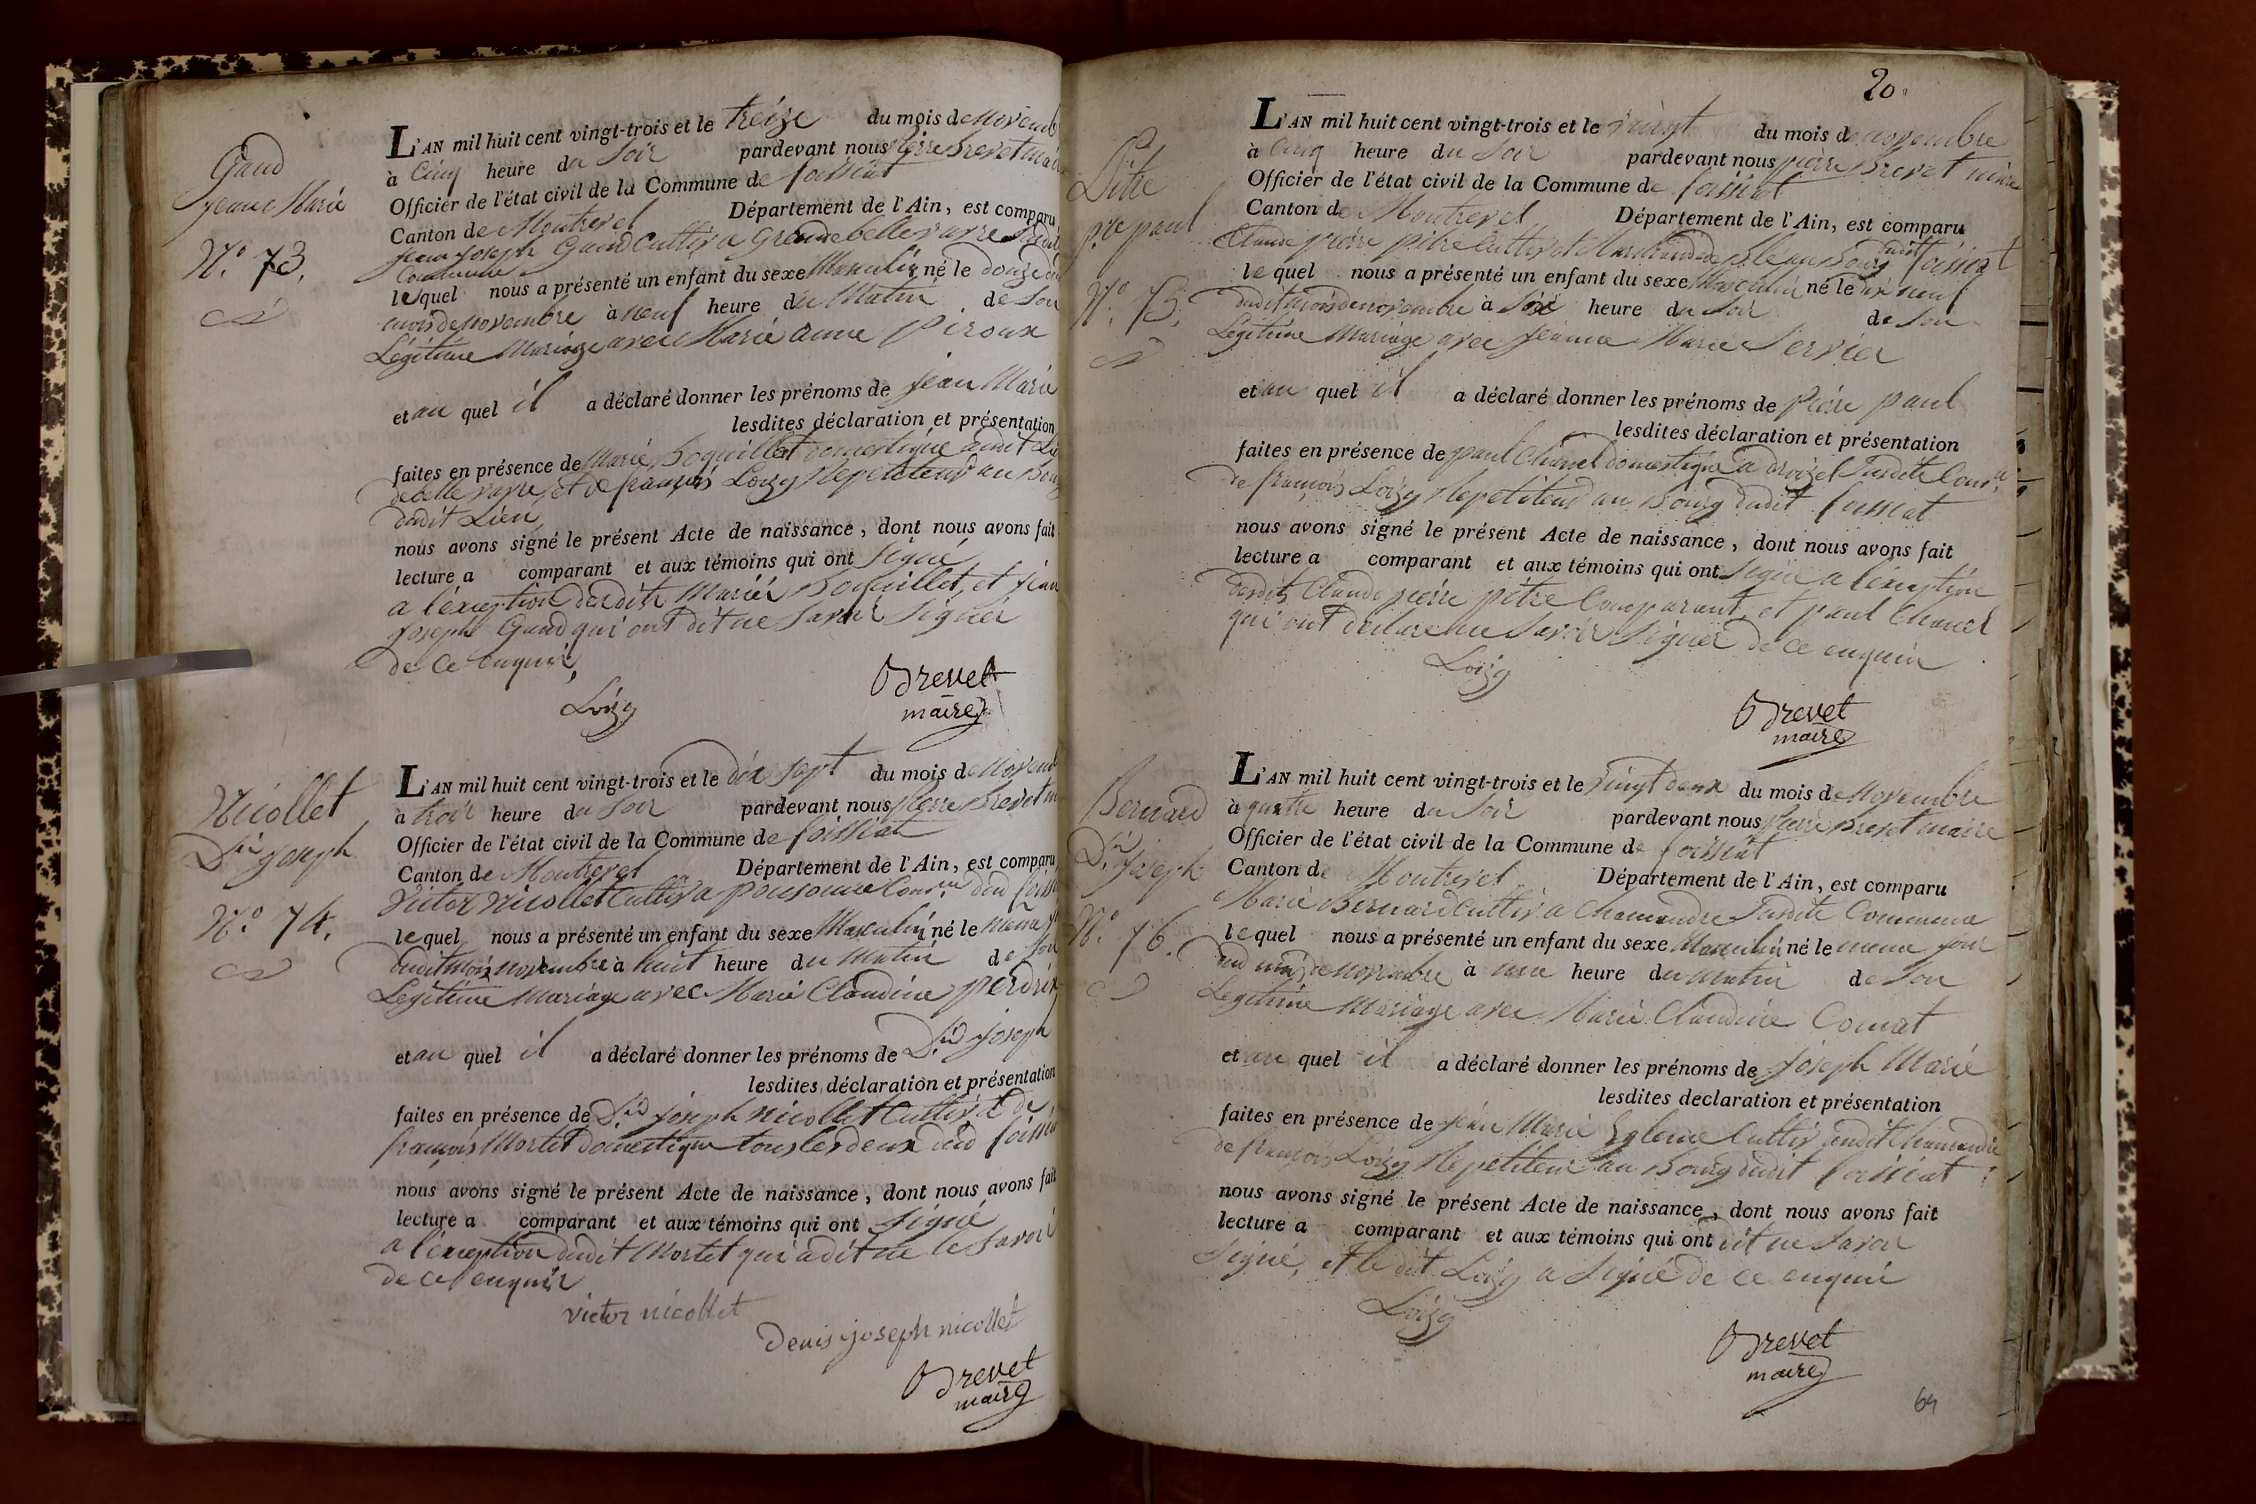 Gaud
Jean Marie
N.º 73.
L'AN mil huit cent vingt-trois et le treize du mois de Novemb
à Cinq heure du Soir pardevant nous Pierre Brevet maire
Officier de l'état civil de la Commune de foissiat
Canton de Montrevel Département de l'Ain, est comparu
jean joseph Gaud Cultiv. a Grande bellevavre
Commune
lequel nous a présenté un enfant du sexe Masculin né le douze du
mois de novembre à neuf heure du Matin de Son
Légitime Mariage avec Marie anne Piroux
et au quel il a déclaré donner les prénoms de jean Marie
lesdites déclaration et présentation
faites en présence de Marie Boquillet domestique audit Lieu
de belle vavre, et de françois Loizy Repetiteur au Bourg
dudit Lieu
nous avons signé le présent Acte de naissance, dont nous avons fait
lecture a comparant et aux témoins qui ont signé
a l'éxception desdits Marie Boquillet, et jean
joseph Gaud qui ont dit ne Savoir Signer
de ce enquis,
Loizy
Brevet
maire
Nicollet
D.is joseph
N.º 74.
L'AN mil huit cent vingt-trois et le dix sept du mois de Novemb
à trois heure du Soir pardevant nous Pierre Brevet m
Officier de l'état civil de la Commune de foissiat
Canton de Montrevel Département de l'Ain, est comparu
Victor Nicollet Cultiv. a
lequel nous a présenté un enfant du sexe Masculin né le même
dudit mois novembre à huit heure du Matin de Son
Legitime Mariage avec Marie Claudine perdrix
et au quel il a déclaré donner les prénoms de D.is joseph
lesdites déclaration et présentation
faites en présence de D.is joseph Nicollet Cultiv. et de
françois Mortet Domestique tous les deux dud foissia
nous avons signé le présent Acte de naissance, dont nous avons fait
lecture a comparant et aux témoins qui ont signé
a l'éxception dudit Mortet qui a dit ne le Savoir
de ce enquis
victor nicollet
denis joseph nicollet
Brevet
maire
20.
Pitre
p.re paul
N.º 75.
L'AN mil huit cent vingt-trois et le vingt du mois de novembre
à Cinq heure du Soir pardevant nous pierre Brevet maire
Officier de l'état civil de la Commune de foissiat
Canton de Montrevel Département de l'Ain, est comparu
Claude pierre pitre Cultiv. et Marchand de Ble au Bourg dudit foissiat
lequel nous a présenté un enfant du sexe Masculin né le dix neuf
dudit mois de novembre à Six heure du Soir de Son
Légitime Mariage avec jeanne Marie Servier
et au quel il a déclaré donner les prénoms de Pierre paul
lesdites déclaration et présentation
faites en présence de paul Chanel domestique a
de françois Loizy Repetiteur au Bourg dudit foissiat
nous avons signé le présent Acte de naissance, dont nous avons fait
lecture a comparant et aux témoins qui ont signé a l'éxception
desdits Claude pierre pitre Comparant, et paul Chanel
qui ont declaré ne Savoir Signer de ce enquis
Loizy
Brevet
maire
Bernard
joseph
N.º 76.
L'AN mil huit cent vingt-trois et le vingt deux du mois de Novembre
à quatre heure du Soir pardevant nous Pierre Brevet maire
Officier de l'état civil de la Commune de foissiat
Canton de Montrevel Département de l'Ain, est comparu
Marie Bernard Cultiv. a Chamandre Susdite Commune
lequel nous a présenté un enfant du sexe Masculin né le meme jour
dud mois de Novembre à une heure du Matin de Son
Legitime Mariage avec Marie Claudine Connat
et au quel il a déclaré donner les prénoms de joseph Marie
lesdites declaration et présentation
faites en présence de jean Marie Cultiv. audit Chamandre
de françois Loizy Repetiteur au Bourg dudit foissiat
nous avons signé le présent Acte de naissance, dont nous avons fait
lecture a comparant et aux témoins qui ont dit ne Savoir
Signé, et le dit Loizy a Signé de ce enquis
Loizy
Brevet
maire
69